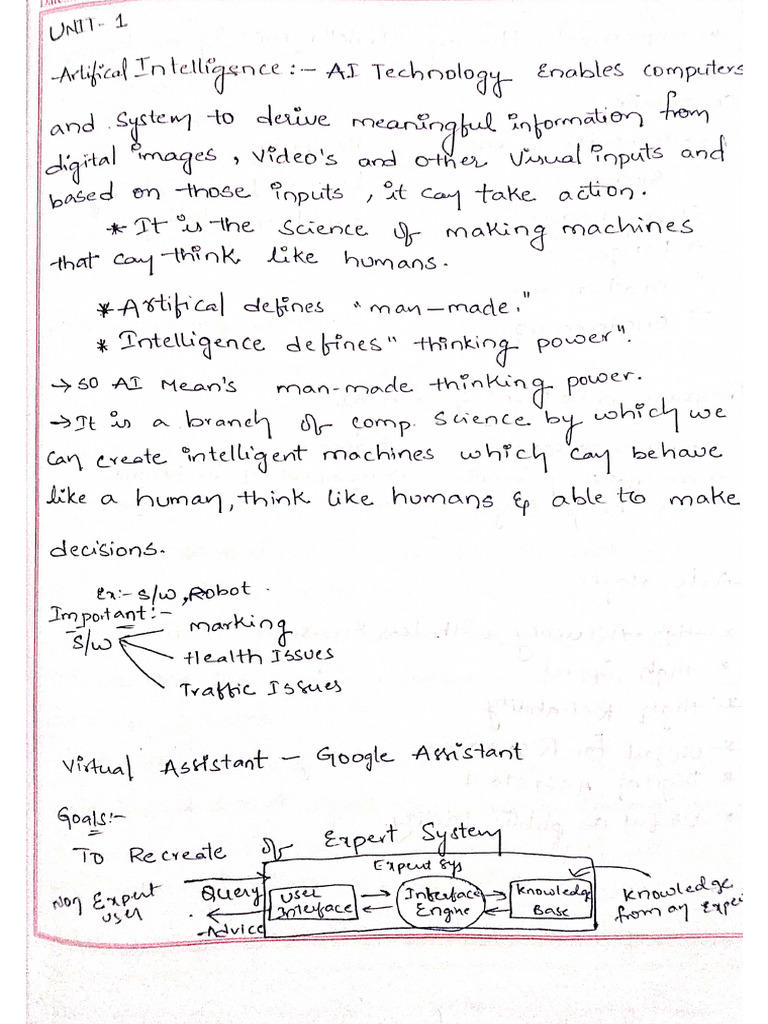 UNIT- 1
Artifical Intelligence :- AI Technology enables computers
and system to derive meaningful information from
digital images, video's and other visual inputs and
based on those inputs, it cay take action.
* It is the science of making machines
that cay think like humans.
* Artifical defines "man-made."
* Intelligence defines "thinking power".
→ so AI Mean's man-made thinking power.
→ It is a branch of comp. science by which we
can create intelligent machines which cay behave
like a human, think like humans & able to make
decisions.
Ex:- s/w, Robot.
Important:-
s/w
marking
Health Issues
Traffic Issues
Virtual Assistant - Google Assistant
Goals:-
To Recreate of Expert System
Expert Sys
Non Expert
user
Query
Advice
User
Interface
Interface
Engine
Knowledge
Base
Knowledge
from an Expe